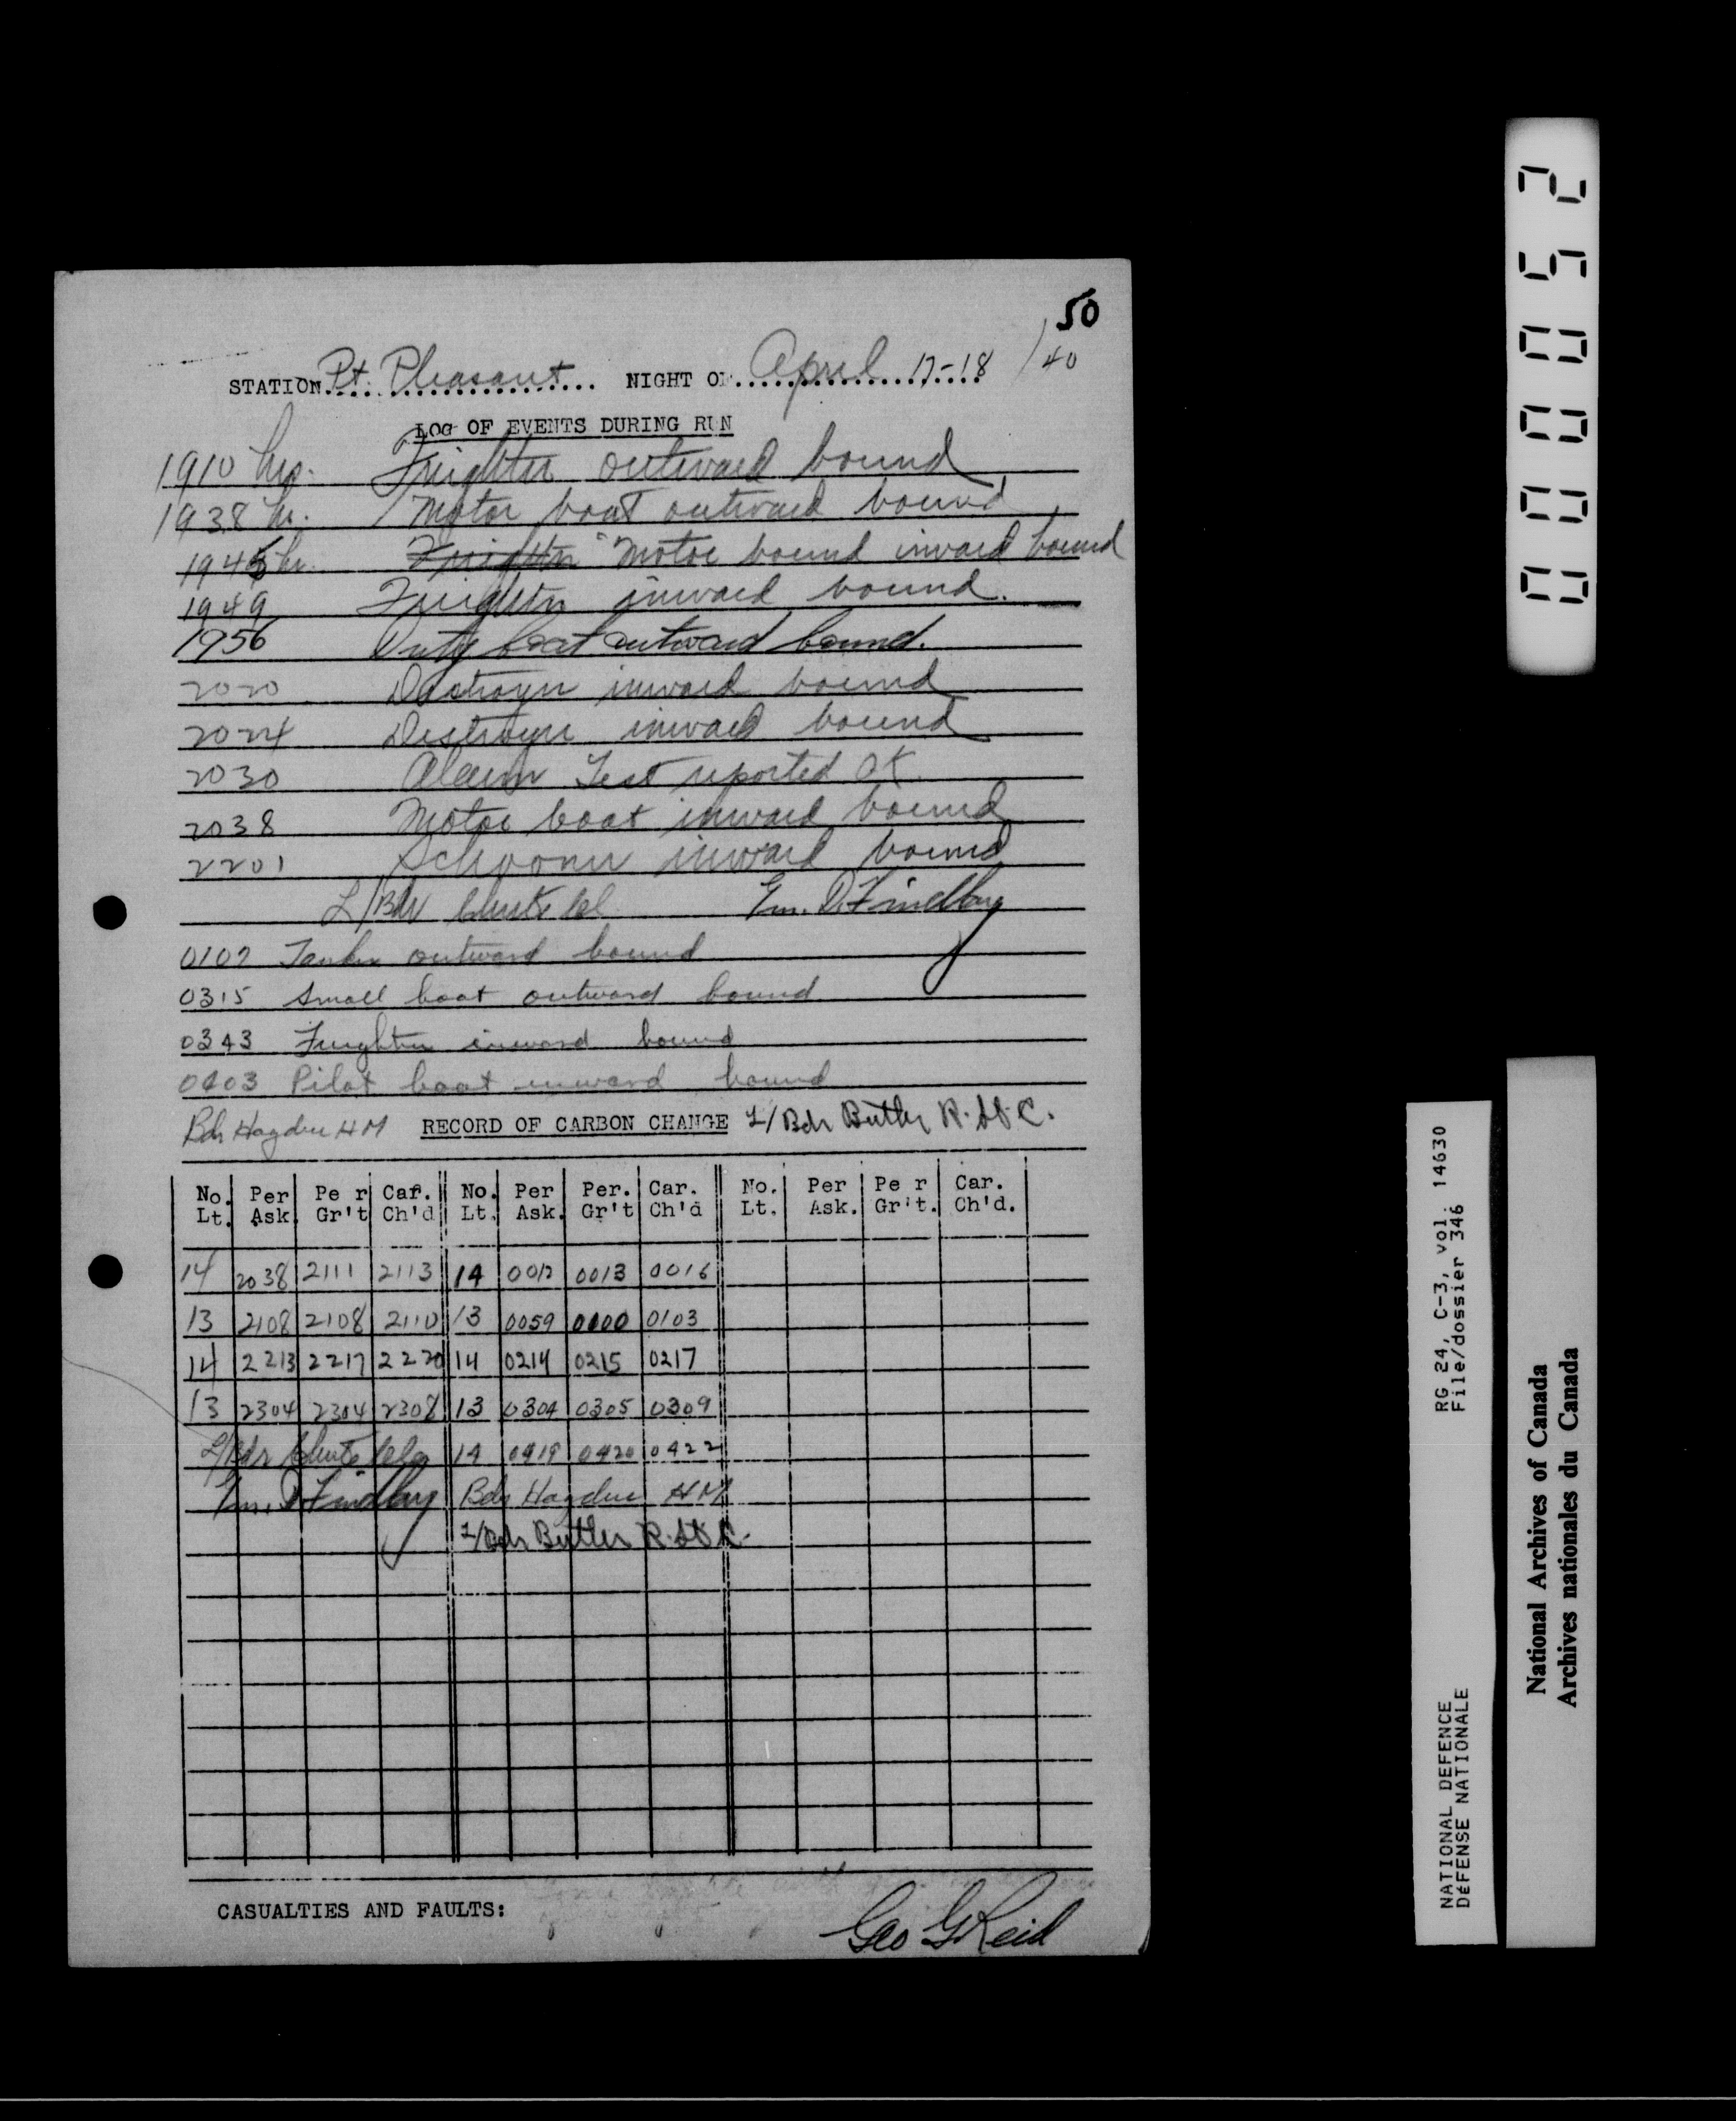 50
STATION Pt. Pleasant NIGHT OF April 17-18 /40
LOG OF EVENTS DURING RUN
1910 hrs. Freighter outward bound
1938 hr. Motor boat outward bound
1945 hr. Freighter Motor bound inward bound
1949 Freighter inward bound.
1956 Duty boat outward bound.
2020 Destroyer inward bound
2024 Destroyer inward bound
2030 Alarm Test reported OK
2038 Motor boat inward bound
2201 Schooner inward bound
L/Bdr Gnr. D. Findlay
0102 Tanker outward bound
0315 Small boat outward bound
0343 Freighter inward bound
0403 Pilot boat inward bound
Bdr Hayden HM RECORD OF CARBON CHANGE L/Bdr Butler R. St. C.
No. Per Pe r Car. No. Per Per. Car. No. Per Pe r Car.
Lt. Ask. Gr't Ch'd Lt. Ask. Gr't Ch'd Lt. Ask. Gr't. Ch'd.
14 2038 2111 2113 14 0012 0013 0016
13 2108 2108 2110 13 0059 0100 0103
14 2213 2217 2220 14 0214 0215 0217
13 2304 2304 2308 13 0304 0305 0309
L/Bdr 14 0419 0420 0422
Gnr. D. Findlay Bdr Hayden HM
L/Bdr Butler R. St. C.
CASUALTIES AND FAULTS:
Geo G Reid
0000052
RG 24, C-3, vol. 14630
File/dossier 346
NATIONAL DEFENCE
DÉFENSE NATIONALE
National Archives of Canada
Archives nationales du Canada